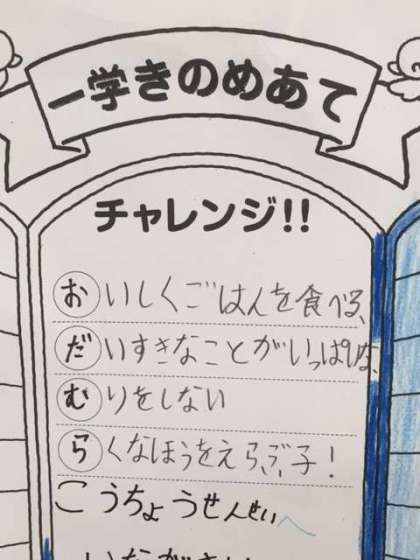 一学きのめあて
チャレンジ!!
おいしくごはんを食べる、
だいすきなことがいっぱいな、
むりをしない
らくなほうをえらぶ、子!
こうちょうせんせい